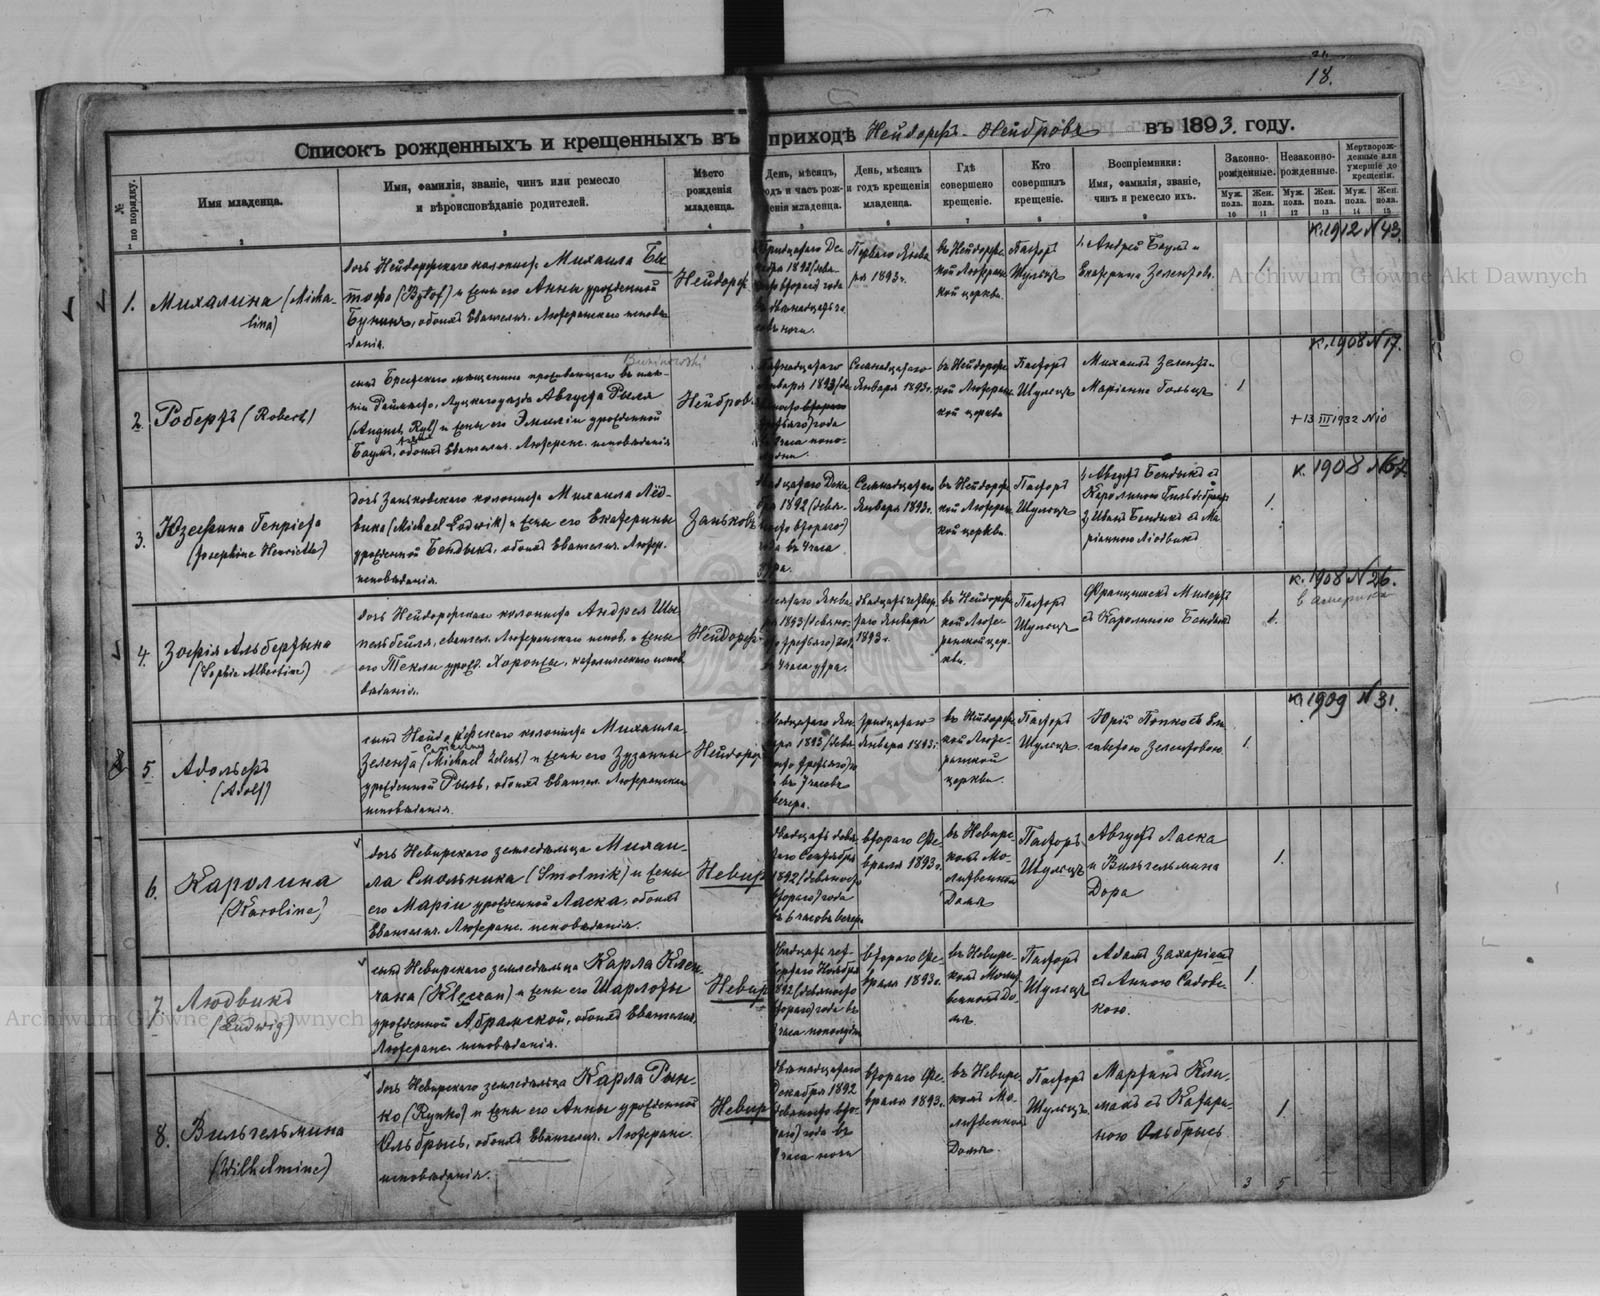 18.
Списокъ рожденныхъ и крещенныхъ въ приходѣ Нейдорфъ-Нейбровъ въ 1893. году.
№ по порядку.
Имя младенца.
Имя, фамилія, званіе, чинъ или ремесло
и вѣроисповѣданіе родителей.
Мѣсто
рожденія
младенца.
День, мѣсяцъ,
годъ и часъ рож-
денія младенца.
День, мѣсяцъ
и годъ крещенія
младенца.
Гдѣ
совершено
крещеніе.
Кто
совершилъ
крещеніе.
Воспріемники:
Имя, фамилія, званіе,
чинъ и ремесло ихъ.
Законно-
рожденные.
Незаконно-
рожденные.
Мертворож-
денные или
умершіе до
крещенія.
Муж. пола.
Жен. пола.
Муж. пола.
Жен. пола.
Муж. пола.
Жен. пола.
1 2 3 4 5 6 7 8 9 10 11 12 13 14 15
к. 1912 N 43.
1.
Михалина (Micha-
lina)
дочь Нейдорфскаго колониста Михаила Бы
тофа (Bytof) и жены его Анны урожденной
обоихъ Евангелич. Лютеранскаго исповѣ
данія.
Нейдорфъ
Перваго Янва
ря 1893 г.
въ Нейдорфс
кой Лютеран
ской церкви.
Пасторъ
Шульцъ
1, Андрей Баумъ и
Екатерина Зелентъ
1
к. 1908 N 17.
2.
Робертъ (Robert)
сынъ Брестскаго мѣщанина проживающаго въ имѣ-
ніи Луцкаго уѣзда Августа Рыля
(August Ryl) и жены его Эмиліи урожденной
Баумъ, обоихъ Евангелич. Лютеранс. исповѣданія
Нейбровъ
Семнадцатаго
Января 1893 г.
въ Нейдорфс
кой Лютеранс
кой церкви
Пасторъ
Шульцъ
Михаилъ Зелентъ и
Маріанна Гольцъ
1
+ 13 III 1932 N 10
к. 1908 N 67.
3.
Юзефина Генріета
(Josephine Henriette)
дочь Заньковскаго колониста Михаила Люд-
вика (Michael Ludwik) и жены его Екатерины
урожденной Бендыкъ, обоихъ Евангелич. Лютер.
исповѣданія.
Заньковъ
Семнадцатаго
Января 1893 г.
въ Нейдорфс
кой Лютеранс
кой церкви.
Пасторъ
Шульцъ
1, Августъ Бендыкъ съ
Каролиною Гильдебрандъ
2, Иванъ Бендыкъ съ Ма
ріанною Людвикъ
1.
к. 1908 N 26.
в Америкѣ
4.
Зофія Альбертына
(Sophie Albertine)
дочь Нейдорфскаго колониста Андрея Шы
пельбейля, евангел. Лютеранскаго испов. и жены
его Текли урожд. Хоронжы, католическаго испов
ѣданія.
Нейдорфъ
двадцать четвер
таго Января
1893 г.
въ Нейдорфс
кой Люте-
ранской цер-
кви.
Пасторъ
Шульцъ
Францишекъ Милеръ
съ Каролиною Бендыкъ
1.
к. 1909 N 31.
5.
Адольфъ
(Adolf)
сынъ Нейдорфскаго колониста Михаила
Зелента (Michael Zelent) и жены его Зузанны
урожденной Рыль, обоихъ Евангел. Лютеранскаго
исповѣданія.
Нейдорфъ
тридцатаго
Января 1893 г.
въ Нейдорфс
кой Люте-
ранской
церкви.
Пасторъ
Шульцъ
Юрій Попко съ Ели
саветою Зелентовою
1.
6.
Каролина
(Karoline)
дочь Невирскаго земледѣльца Михаи-
ла Смольника (Smolnik) и жены
его Маріи урожденной Ласка, обоихъ
Евангелич. Лютеранс. исповѣданія.
Невиръ
двадцать девя
таго Сентября
1892 (девяносто
второго) года
въ 6 часовъ вечера
второго Фе-
враля 1893 г.
въ Невирс-
комъ Мо-
литвенномъ
Домѣ
Пасторъ
Шульцъ
Августъ Ласка
и Вильгельмина
Дора
1.
7.
Людвикъ
(Ludwig)
сынъ Невирскаго земледѣльца Карла Клен-
чана (Klęczan) и жены его Шарлоты
урожденной Абрамской, обоихъ Евангелич.
Лютеранс. исповѣданія.
Невиръ
второго Фе-
враля 1893 г.
въ Невирс-
комъ Молит
венномъ До-
мѣ.
Пасторъ
Шульцъ
Адамъ Захаріашъ
съ Анною Садовс-
кою.
1.
8.
Вильгельмина
(Wilhelmine)
дочь Невирскаго земледѣльца Карла Рын-
ко (Rynko) и жены его Анны урожденной
Ольбрысь, обоихъ Евангелич. Лютеранс.
исповѣданія.
Невиръ
второго Фе-
враля 1893 г.
въ Невирс-
комъ Мо-
литвенномъ
Домѣ.
Пасторъ
Шульцъ
Мартинъ Кли-
макъ съ Катари-
ною Ольбрысь
1.
3 5
Archiwum Główne Akt Dawnych
Archiwum Główne Akt Dawnych